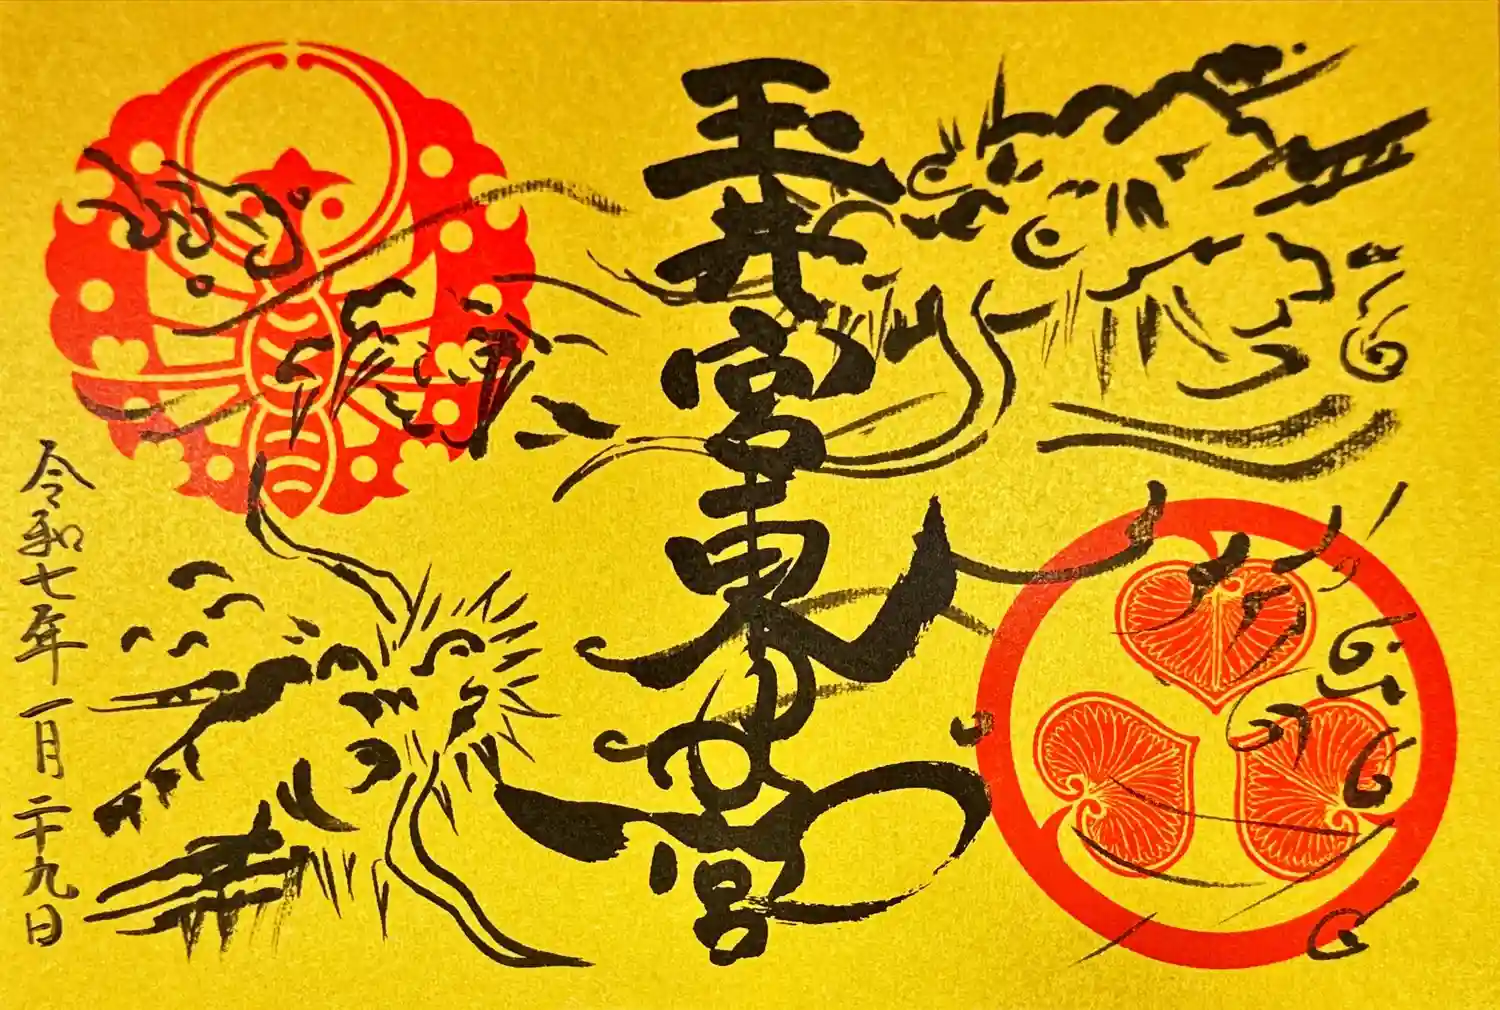 玉井宮東照宮
令和七年一月二十九日